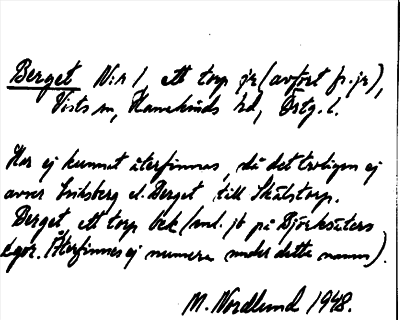 Berget N:r 1 ett torp jr (avfört fr. jr),
Vists sn, Hanekinds hd, Östg. l.
Har ej kunnat återfinnas, då det troligen ej
avser Eriksberg el. Berget till Skälstorp.
Berget, ett torp Öck (und. jb på Björksäters
ägor. Återfinnes ej numera under detta namn).
M. Nordlund 1948.